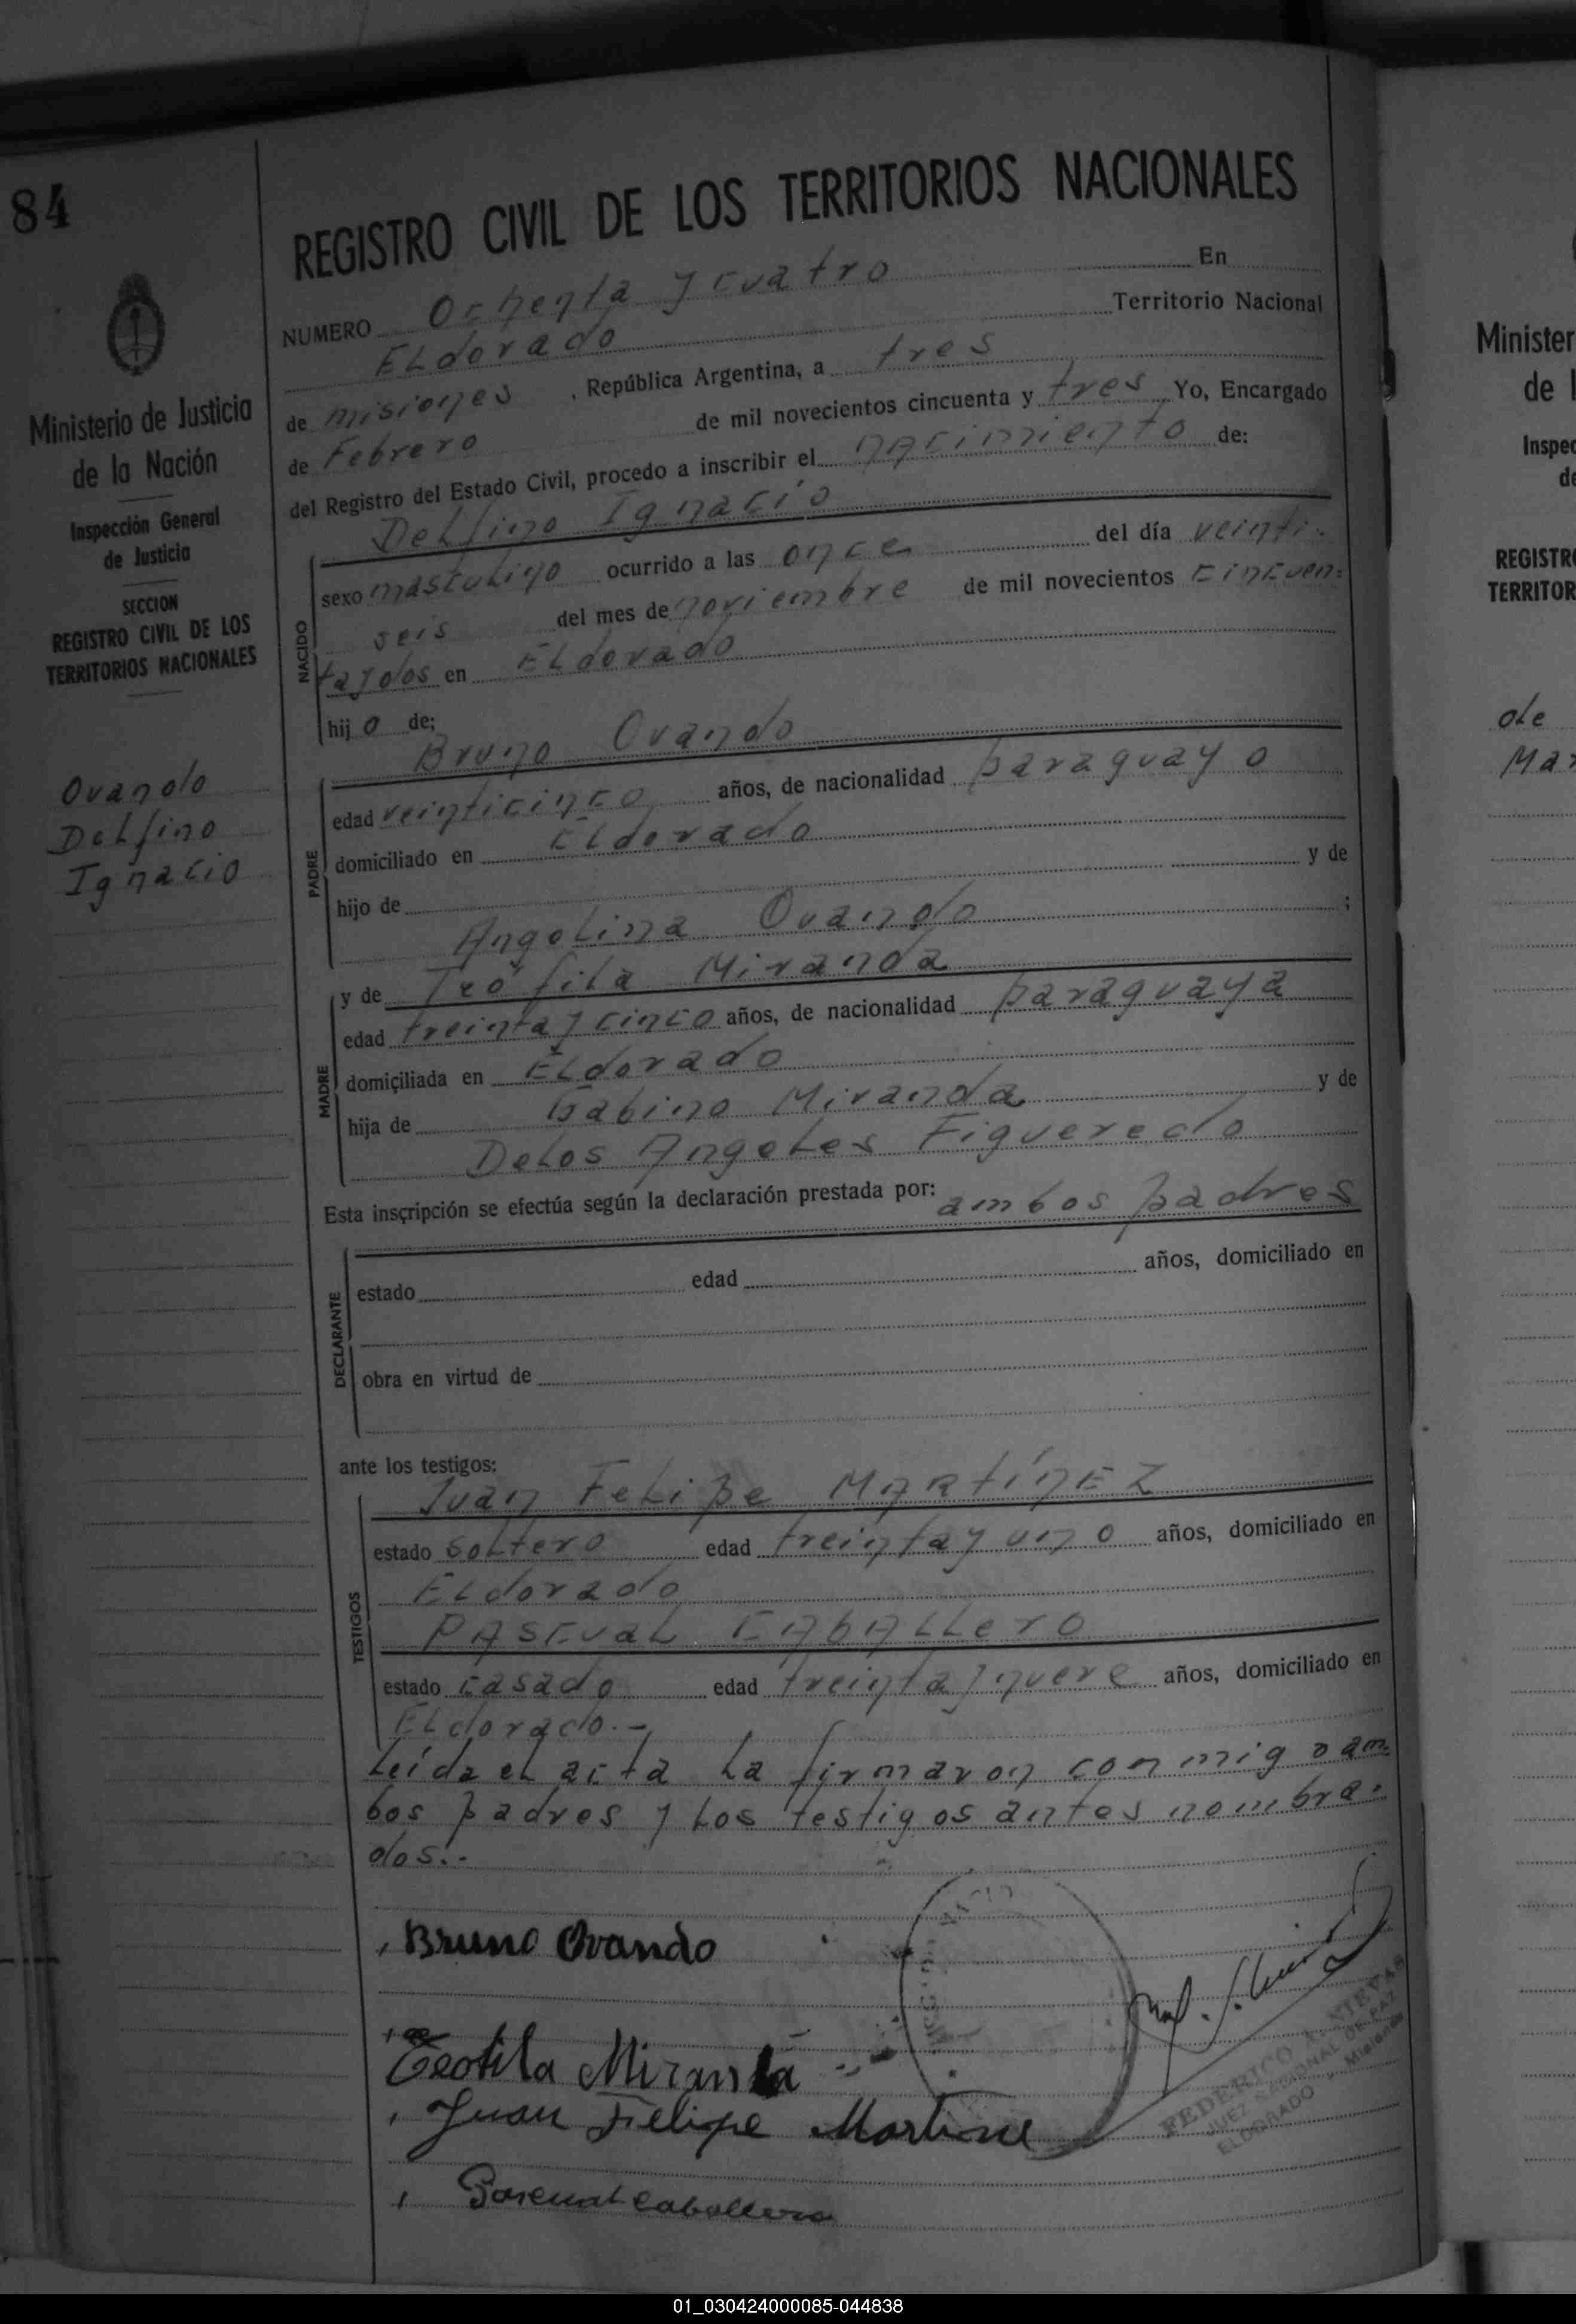 84
Ministerio de Justicia
de la Nación
Inspección General
de Justicia
SECCION
REGISTRO CIVIL DE LOS
TERRITORIOS NACIONALES
Ovando
Delfino
Ignacio
REGISTRO CIVIL DE LOS TERRITORIOS NACIONALES
NUMERO Ochenta y cuatro En
Eldorado Territorio Nacional
de misiones , República Argentina, a tres
de Febrero de mil novecientos cincuenta y tres Yo, Encargado
del Registro del Estado Civil, procedo a inscribir el nacimiento de:
Delfino Ignacio
NACIDO
sexo masculino ocurrido a las once del día veinti-
seis del mes de noviembre de mil novecientos cincuen-
ta y dos en Eldorado
hij o de;
Bruno Ovando
PADRE
edad veinticinco años, de nacionalidad paraguayo
domiciliado en Eldorado
hijo de y de
Angelina Ovando ;
MADRE
y de Teófila Miranda
edad treinta y cinco años, de nacionalidad paraguaya
domiçiliada en Eldorado
hija de Gabino Miranda y de
Delos Angeles Figueredo
Esta insçripción se efectúa según la declaración prestada por: ambos padres
DECLARANTE
estado edad años, domiciliado en
obra en virtud de
ante los testigos:
Juan Felipe MARTÍNEZ
TESTIGOS
estado soltero edad treinta y uno años, domiciliado en
Eldorado
PASCUAL CABALLERO
estado casado edad treinta y nueve años, domiciliado en
Eldorado.-
Leída el acta la firmaron conmigo am-
bos padres y los testigos antes nombra-
dos.-
Bruno Ovando
Teofila Miranda
Juan Felipe Martine
Pascual Caballero
FEDERICO X. NIEVAS
JUEZ NACIONAL DE PAZ
ELDORADO - Misiones
Minister
de l
Inspec
de
REGISTR
TERRITOR
de
Mar
01_030424000085-044838